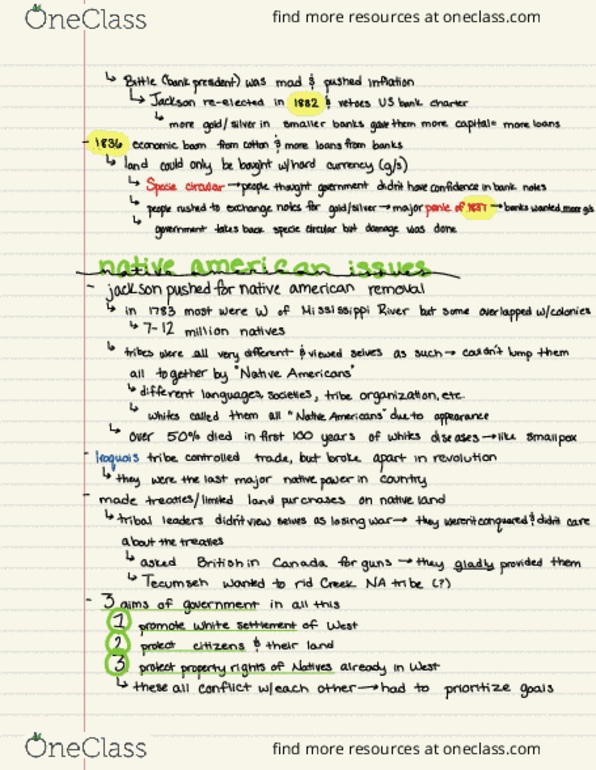 OneClass find more resources at oneclass.com
↳ Bittle (bank president) was mad & pushed inflation
↳ Jackson re-elected in 1882 & vetoes US bank charter
↳ more gold/silver in smaller banks gave them more capital= more loans
- 1836 economic boom from cotton & more loans from banks
↳ land could only be bought w/hard currency (g/s)
↳ Specie circular → people thought government didn't have confidence in bank notes
↳ people rushed to exchange notes for gold/silver → major panic of 1837 → banks wanted more g/s
↳ government takes back specie circular but damage was done
native american issues
- jackson pushed for native american removal
↳ in 1783 most were W of Mississippi River but some overlapped w/colonies
↳ 7-12 million natives
↳ tribes were all very different & viewed selves as such → couldn't lump them
all together by "Native Americans"
↳ different languages, societies, tribe organization, etc.
↳ whites called them all "Native Americans" due to appearance
↳ over 50% died in first 100 years of whites diseases → like smallpox
- Iroquois tribe controlled trade, but broke apart in revolution
↳ they were the last major native power in country
- made treaties/limited land purchases on native land
↳ tribal leaders didn't view selves as losing war → they weren't conquered & didn't care
about the treaties
↳ asked British in Canada for guns → they gladly provided them
↳ Tecumseh wanted to rid Creek NA tribe (?)
- 3 aims of government in all this
1 promote white settlement of West
2 protect citizens & their land
3 protect property rights of Natives already in West
↳ these all conflict w/each other → had to prioritize goals
OneClass find more resources at oneclass.com